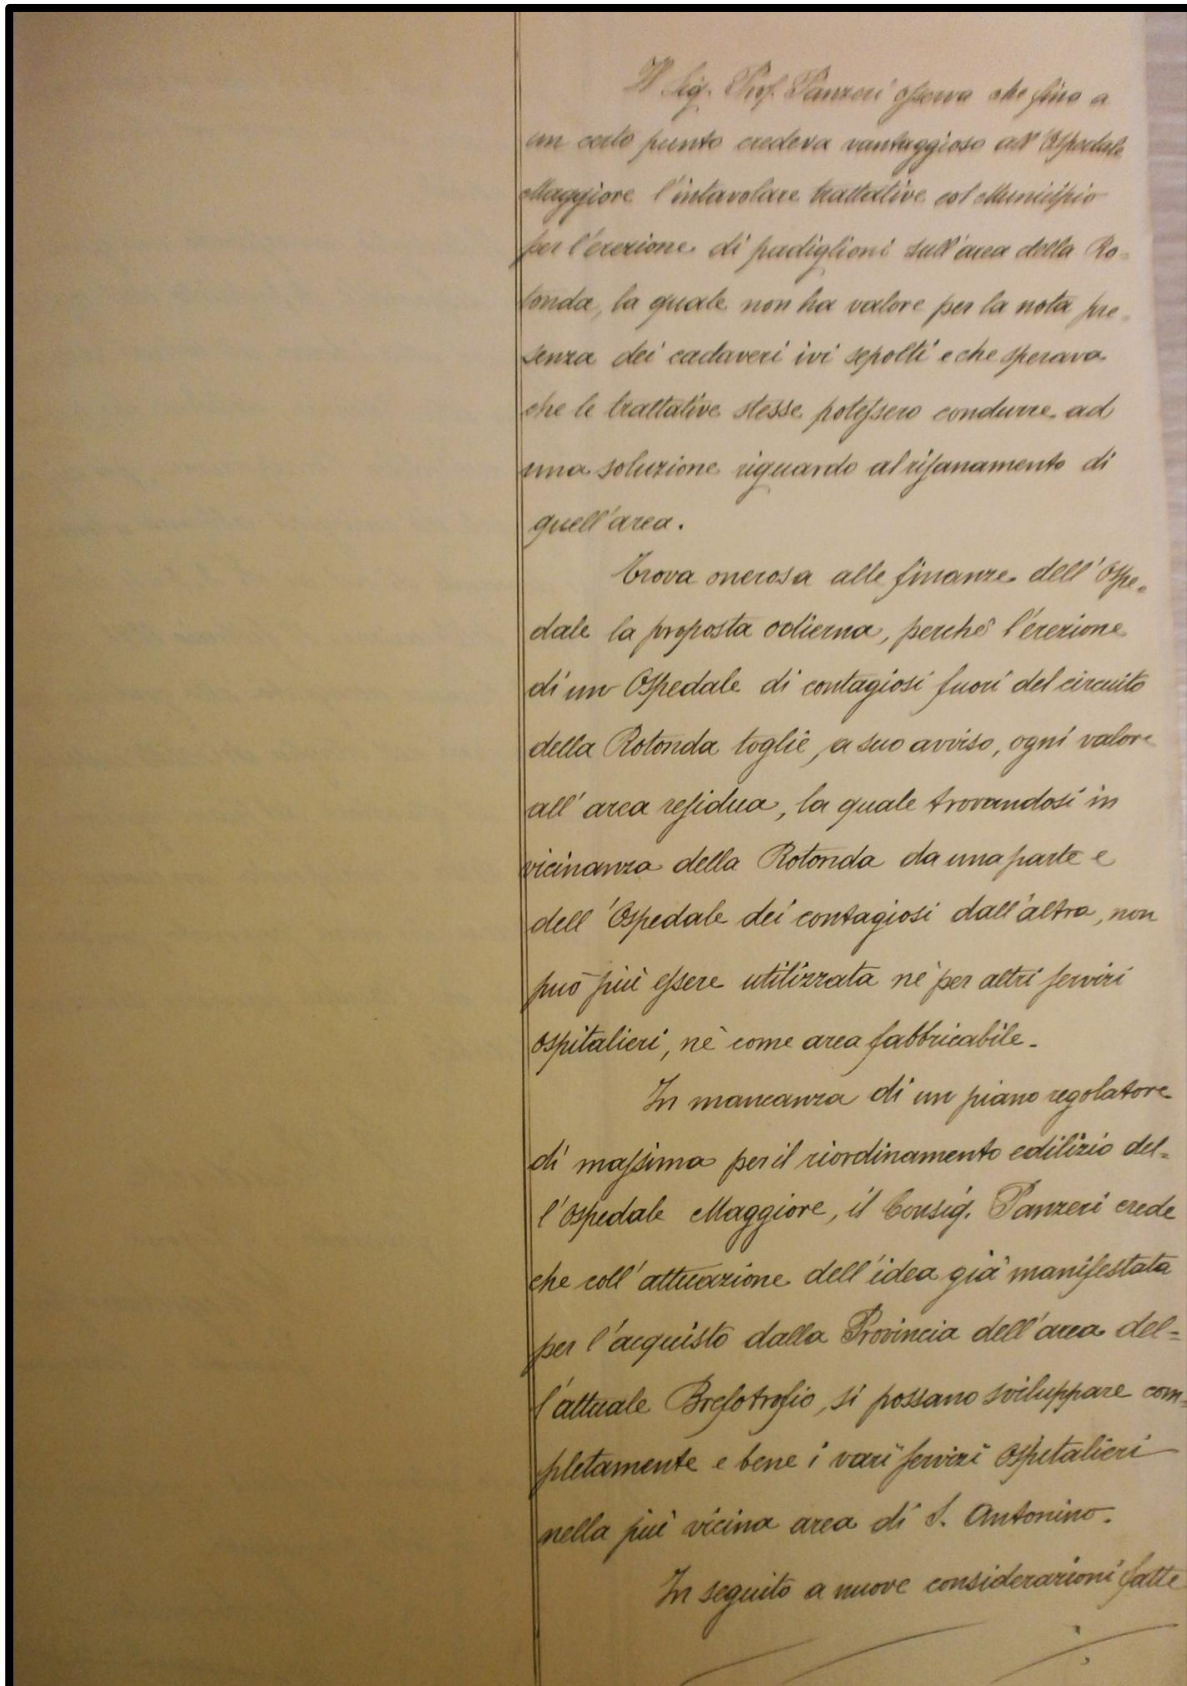 Il Sig. Prof. Panzeri osserva che fino a
un certo punto credeva vantaggioso all'Ospedale
Maggiore l'intavolare trattative col Municipio
per l'erezione di padiglioni sull'area della Ro-
tonda, la quale non ha valore per la nota pre-
senza dei cadaveri ivi sepolti e che sperava
che le trattative stesse potessero condurre ad
una soluzione riguardo al risanamento di
quell'area.
Trova onerosa alle finanze dell'Ospe-
dale la proposta odierna, perchè l'erezione
di un Ospedale di contagiosi fuori del circuito
della Rotonda toglie, a suo avviso, ogni valore
all'area residua, la quale trovandosi in
vicinanza della Rotonda da una parte e
dell'Ospedale dei contagiosi dall'altra, non
può più essere utilizzata nè per altri servizi
ospitalieri, nè come area fabbricabile.
In mancanza di un piano regolatore
di massima per il riordinamento edilizio del-
l'Ospedale Maggiore, il Consig. Panzeri crede
che coll'attuazione dell'idea già manifestata
per l'acquisto dalla Provincia dell'area del-
l'attuale Brefotrofio, si possano sviluppare com-
pletamente e bene i vari servizi Ospitalieri
nella più vicina area di S. Antonino.
In seguito a nuove considerazioni fatte